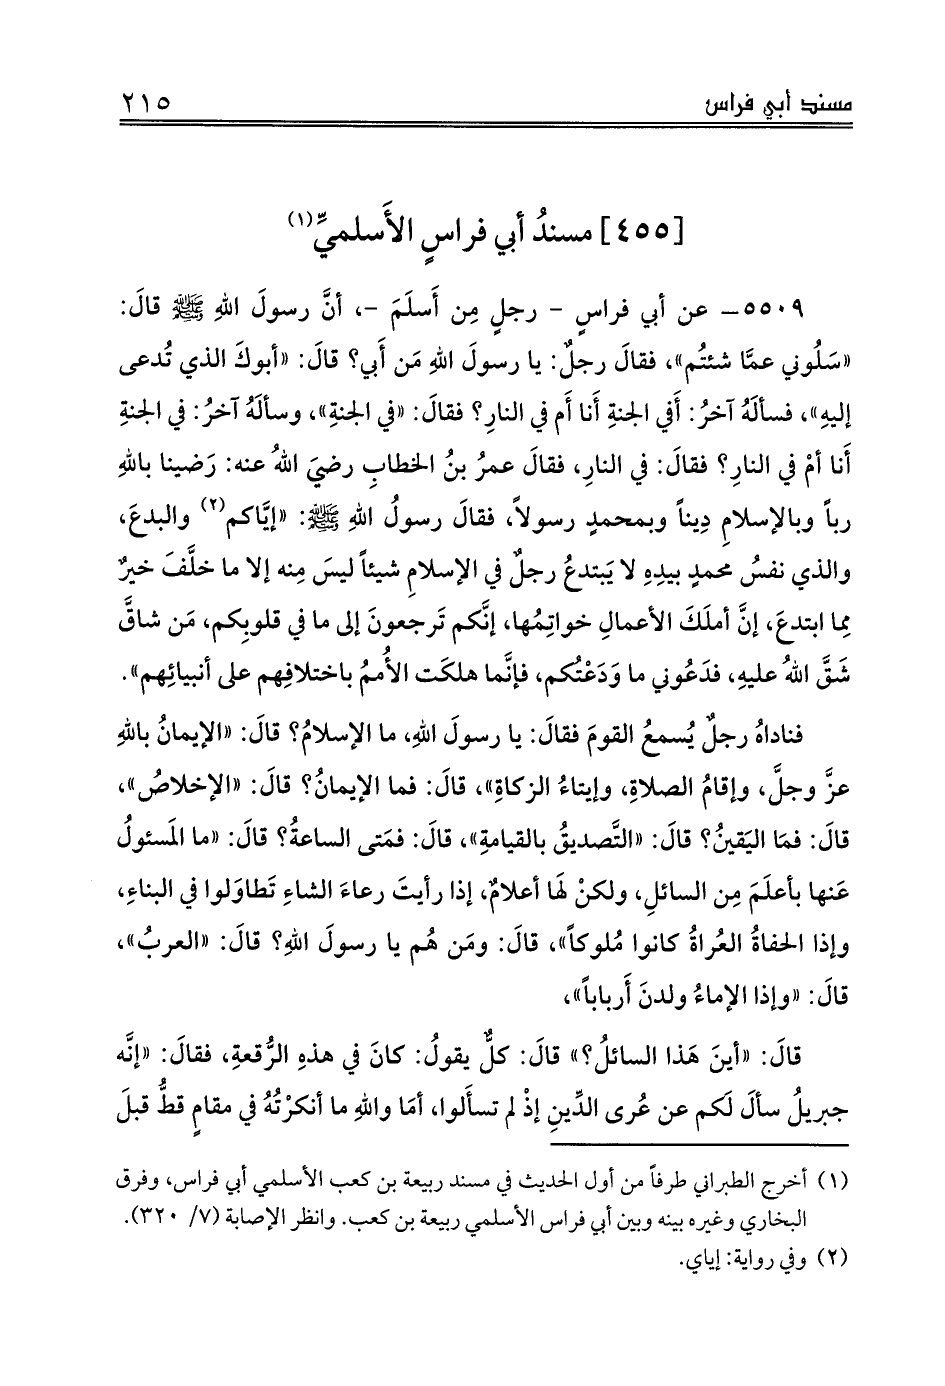 مسند أبي فراس ٢١٥
[٤٥٥] مسندُ أبي فراسٍ الأَسلميِّ(١)
٥٥٠٩ـ عن أبي فراسٍ - رجلٍ مِن أَسلَمَ -، أنَّ رسولَ اللهِ ﷺ قالَ:
«سَلُوني عمَّا شئتُم»، فقالَ رجلٌ: يا رسولَ اللهِ مَن أَبي؟ قالَ: «أبوكَ الذي تُدعى
إليهِ»، فسألَهُ آخرُ: أَفي الجنةِ أَنا أَم في النارِ؟ فقالَ: «في الجنةِ»، وسألَهُ آخرُ: في الجنةِ
أَنا أمْ في النارِ؟ فقالَ: في النارِ، فقالَ عمرُ بنُ الخطابِ رضيَ اللهُ عنه: رَضينا باللهِ
رباً وبالإسلامِ دِيناً وبمحمدٍ رسولاً، فقالَ رسولُ اللهِ ﷺ: «إيَّاكم(٢) والبدعَ،
والذي نفسُ محمدٍ بيدِهِ لا يَبتدعُ رجلٌ في الإسلامِ شيئاً ليسَ مِنه إلا ما خلَّفَ خيرٌ
مِما ابتدعَ، إنَّ أملَكَ الأعمالِ خواتِمُها، إنَّكم تَرجعونَ إلى ما في قلوبِكم، مَن شاقَّ
شَقَّ اللهُ عليهِ، فدَعُوني ما وَدَعْتُكم، فإنَّما هلكَت الأُممُ باختلافِهم على أنبيائِهم».
فناداهُ رجلٌ يُسمعُ القومَ فقالَ: يا رسولَ اللهِ، ما الإسلامُ؟ قالَ: «الإيمانُ باللهِ
عزَّ وجلَّ، وإقامُ الصلاةِ، وإيتاءُ الزكاةِ»، قالَ: فما الإيمانُ؟ قالَ: «الإخلاصُ»،
قالَ: فمَا اليَقينُ؟ قالَ: «التَّصديقُ بالقيامةِ»، قالَ: فمَتى الساعةُ؟ قالَ: «ما المَسئولُ
عَنها بأعلَمَ مِن السائلِ، ولكنْ لهَا أعلامٌ، إذا رأيتَ رعاءَ الشاءِ تَطاوَلوا في البناءِ،
وإذا الحفاةُ العُراةُ كانوا مُلوكاً»، قالَ: ومَن هُم يا رسولَ اللهِ؟ قالَ: «العربُ»،
قالَ: «وإذا الإماءُ ولدنَ أَرباباً»،
قالَ: «أينَ هَذا السائلُ؟» قالَ: كلٌّ يقولُ: كانَ في هذهِ الرُّقعةِ، فقالَ: «إنَّه
جبريلُ سألَ لَكم عن عُرى الدِّينِ إذْ لم تسأَلوا، أمَا واللهِ ما أنكرْتُهُ في مقامٍ قطُّ قبلَ
(١) أخرج الطبراني طرفاً من أول الحديث في مسند ربيعة بن كعب الأسلمي أبي فراس، وفرق
البخاري وغيره بينه وبين أبي فراس الأسلمي ربيعة بن كعب. وانظر الإصابة (٧/ ٣٢٠).
(٢) وفي رواية: إياي.